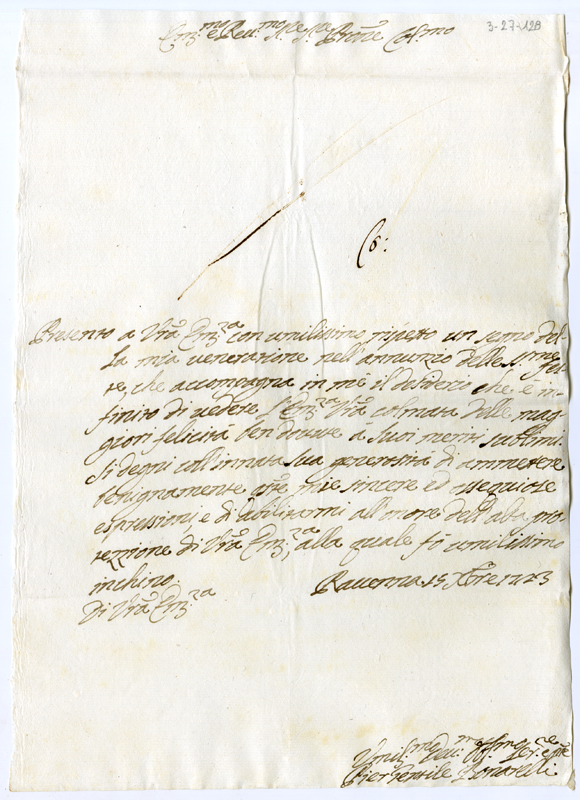 3-27-128
Em.mo e Rev.mo Sig.re Sig.re Prone Col.mo
Co:
Presento a Vrã Em.za con umilissimo rispetto un senno del-
la mia venerazione nell'annunzio delle S.me Fes-
te, che accompagna in me il desiderio che è in-
finito di vedere l'Em.za Vrã colmata delle mag-
giori felicità ben dovute a' suoi meriti sublimi.
Si degni coll'innata sua generosità di ammettere
benignamente queste mie sincere ed ossequiose
espressioni, e di abilitarmi all'onore dell'alta pro-
tezzione di Vrã Em.za, alla quale fò umilissimo
inchino.
Ravenna 15 Xbre 1723
Di Vrã Em.za
Umil.mo Dev.mo Obl.mo Ser.re
Pier Gentile Bonarelli